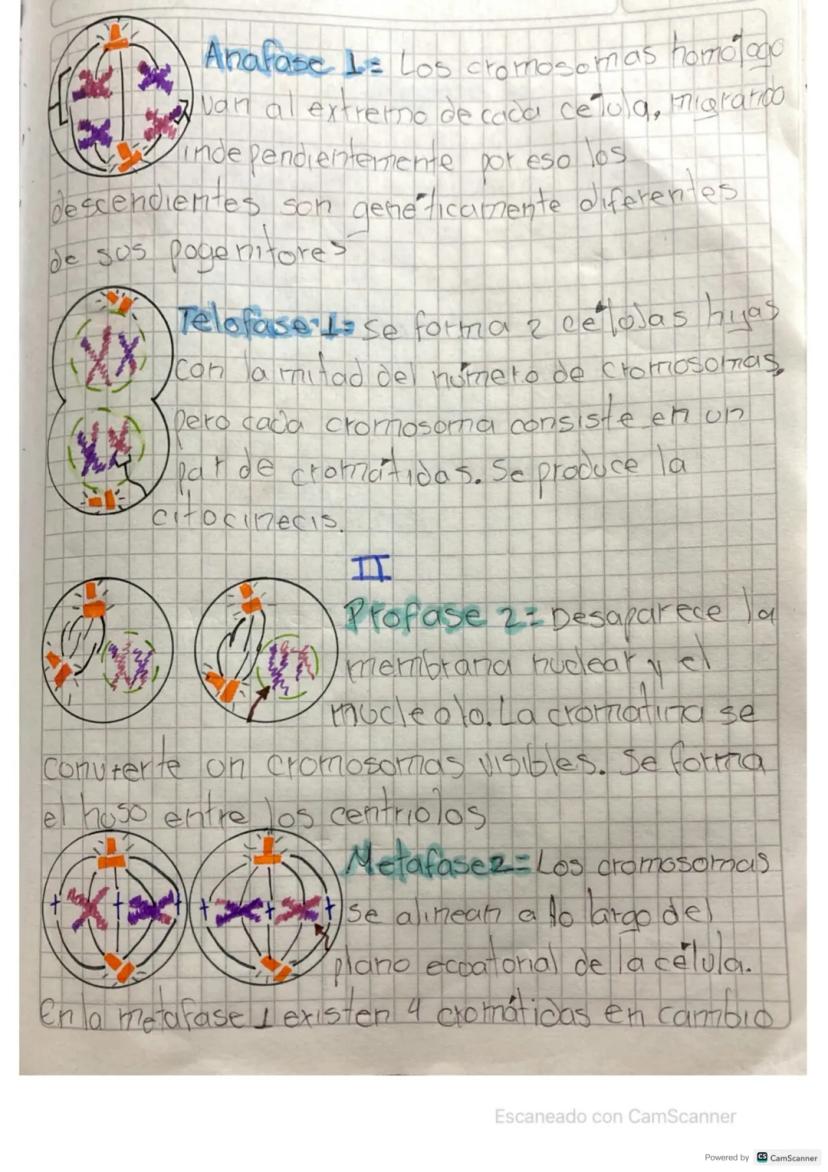 Anafase 1= Los cromosomas homólogo
van al extremo de cada célula, migrando
independientemente por eso los
descendientes son genéticamente diferentes
de sos pogenitores
Telofase 1= Se forma 2 célolas hijas
con la mitad del número de cromosomas,
pero cada cromosoma consiste en un
par de cromátidas. Se produce la
citocinecis.
II
Profase 2= Desaparece la
membrana nuclear y el
nucleolo. La cromatina se
converte on cromosomas visibles. Se forma
el huso entre los centriolos
Metafase 2= Los cromosomas
se alinean a lo largo del
plano ecoatorial de la célula.
En la metafase 1 existen 4 cromátidas en cambio
Escaneado con CamScanner
Powered by CS CamScanner